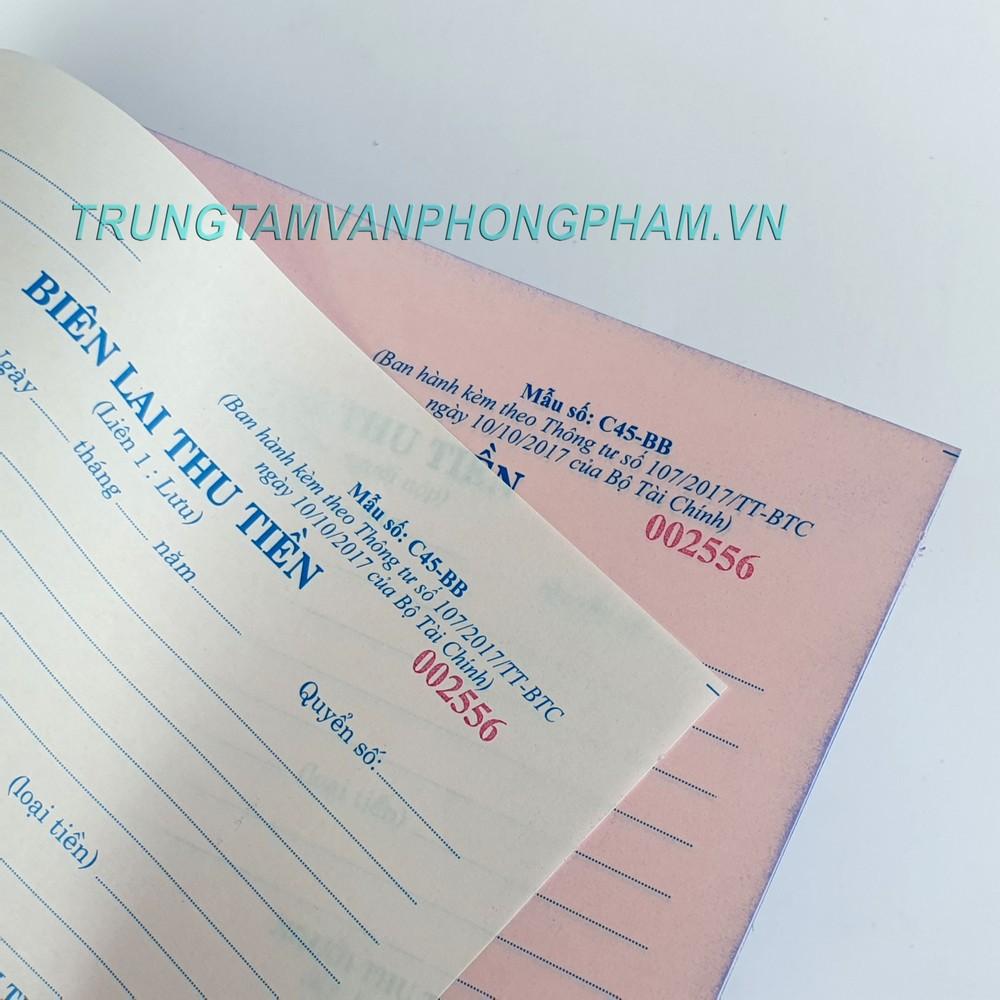 TRUNGTAMVANPHONGPHAM.VN
BIÊN LAI THU TIỀN
(Liên 1 : Lưu)
Ngày tháng năm
Mẫu số: C45-BB
(Ban hành kèm theo Thông tư số 107/2017/TT-BTC
ngày 10/10/2017 của Bộ Tài Chính)
002556
Quyển số:
(loại tiền)
Mẫu số: C45-BB
(Ban hành kèm theo Thông tư số 107/2017/TT-BTC
ngày 10/10/2017 của Bộ Tài Chính)
002556